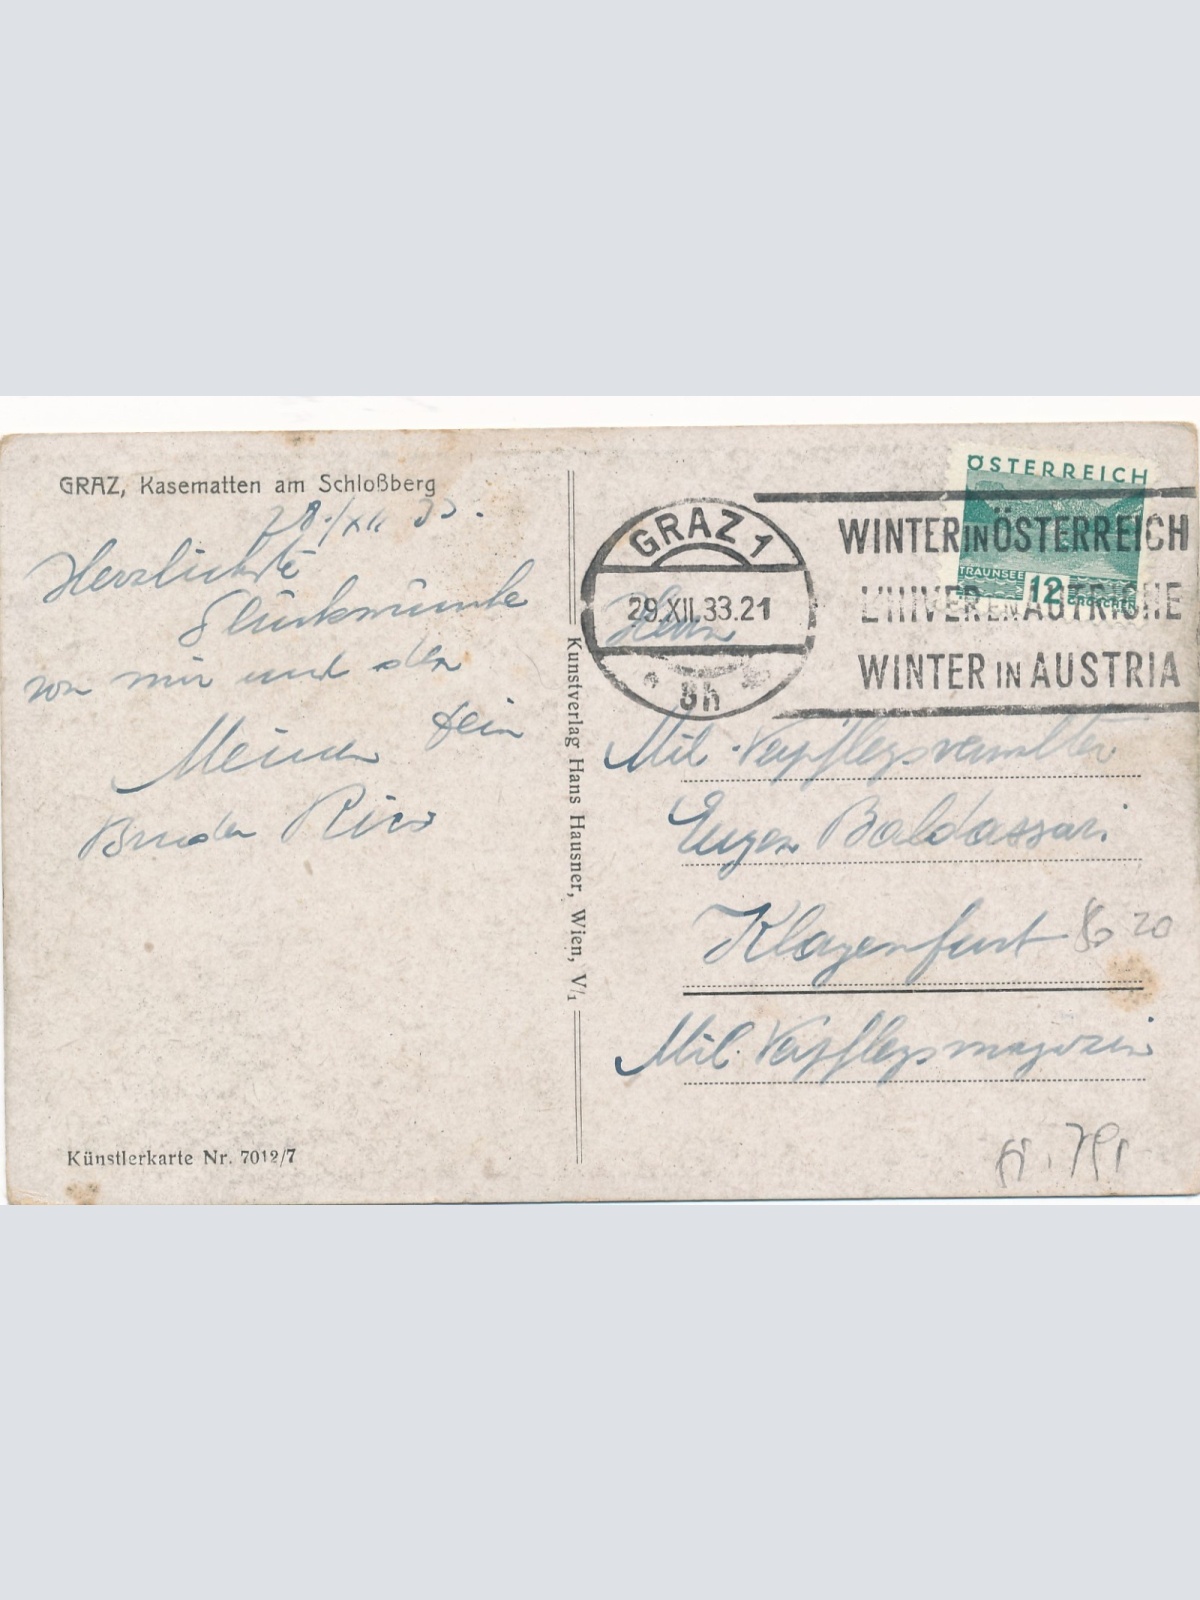 GRAZ, Kasematten am Schloßberg
28./XII 33.
Herzlichste
Glückwünsche
von mir und den
Meinen Dein
Bruder Rico
Künstlerkarte Nr. 7012/7
Kunstverlag Hans Hausner, Wien, V/1
GRAZ 1
29.XII.33.21
* 8h *
WINTER IN ÖSTERREICH
L'HIVER EN AUTRICHE
WINTER IN AUSTRIA
ÖSTERREICH
TRAUNSEE
12
GROSCHEN
Herrn
Mil. Verpflegsverwalter
Eugen Baldassari
Klagenfurt
20
Mil. Verpflegsmagazin